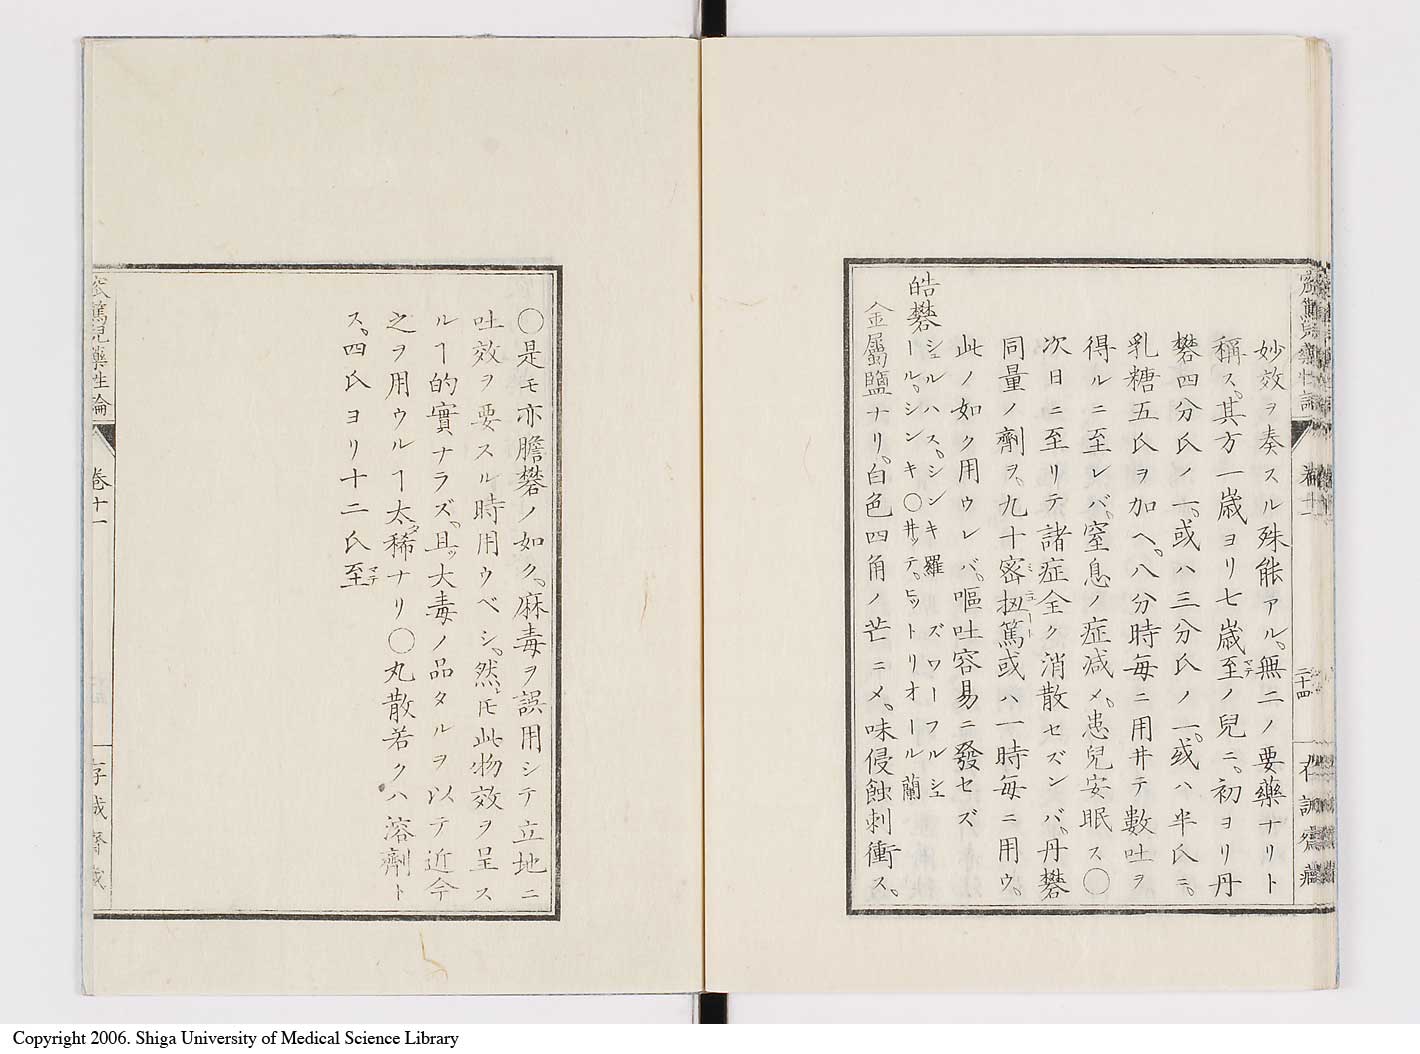 妙效ヲ奏スル殊能アル。無二ノ要藥ナリト
稱ス。其方一歳ヨリ七歳至マテノ兒ニ。初ヨリ丹
礬四分氏ノ一。或ハ三分氏ノ一。或ハ半氏ニ。
乳糖五氏ヲ加ヘ。八分時毎ニ用井テ數吐ヲ
得ルニ至レバ。窒息ノ症減メ。患兒安眠ス〇
次日ニ至リテ諸症全ク消散セズンバ。丹礬
同量ノ劑ヲ。九十密扭篤ミニュート或ハ一時毎ニ用ウ。
此ノ如ク用ウレバ。嘔吐容易ニ發セズ
皓礬シュルハス。シンキ羅 ズワーフルシュ
ール。シンキ〇井ッテ。ヒットリオール蘭
金屬鹽ナリ。白色四角ノ芒ニメ。味侵蝕刺衝ス。
二十四
〇是モ亦膽礬ノ如ク。麻毒ヲ誤用シテ立地ニ
吐效ヲ要スル時用ウベシ。然ㇾ𪜈此物效ヲ呈ス
ルヿ的實ナラズ。且ッ大毒ノ品タルヲ以テ近今
之ヲ用ウルヿ太タ稀ナリ〇丸散若クハ溶劑ト
ス。四氏ヨリ十二氏至マテ
窊篤兒藥性論 卷十一
存誠齋藏
Copyright 2006. Shiga University of Medical Science Library